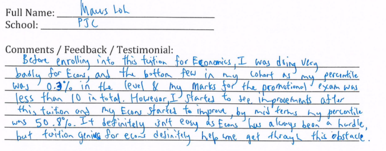 Full Name: Maws Loh
School: PJC
Comments / Feedback / Testimonial:
Before enrolling into this tuition for Economics, I was doing very
badly for Econs, and the bottom few in my cohort as my percentile
was 0.3% in the level & my marks for the promotional exam was
less than 10 in total. However, I started to see improvements after
this tuition and my Econs started to improve, by mid terms my percentile
was 50.8%. It definitely isn't easy as Econs has always been a hurdle,
but tuition genius for econs definitely help me get through this obstacle.